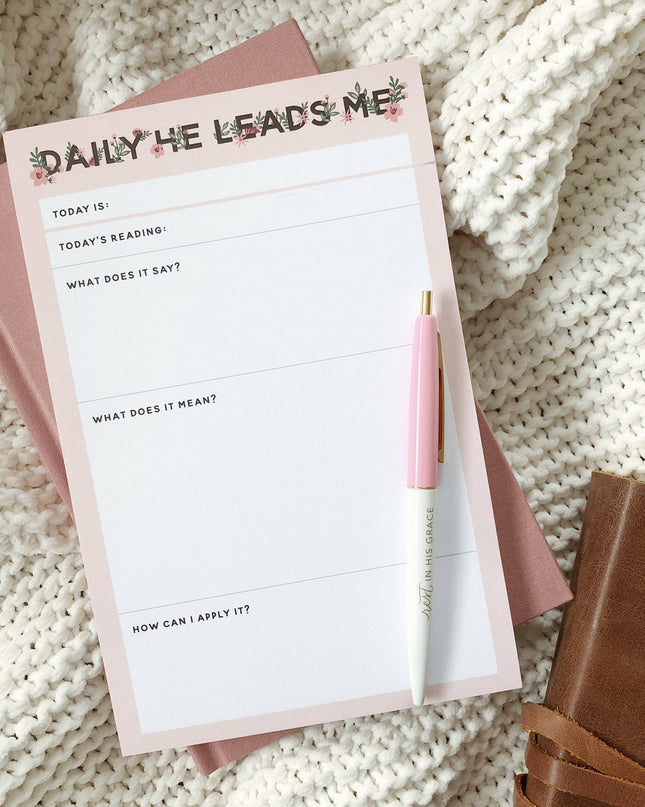 DAILY HE LEADS ME
TODAY IS:
TODAY'S READING:
WHAT DOES IT SAY?
WHAT DOES IT MEAN?
HOW CAN I APPLY IT?
rest IN HIS GRACE